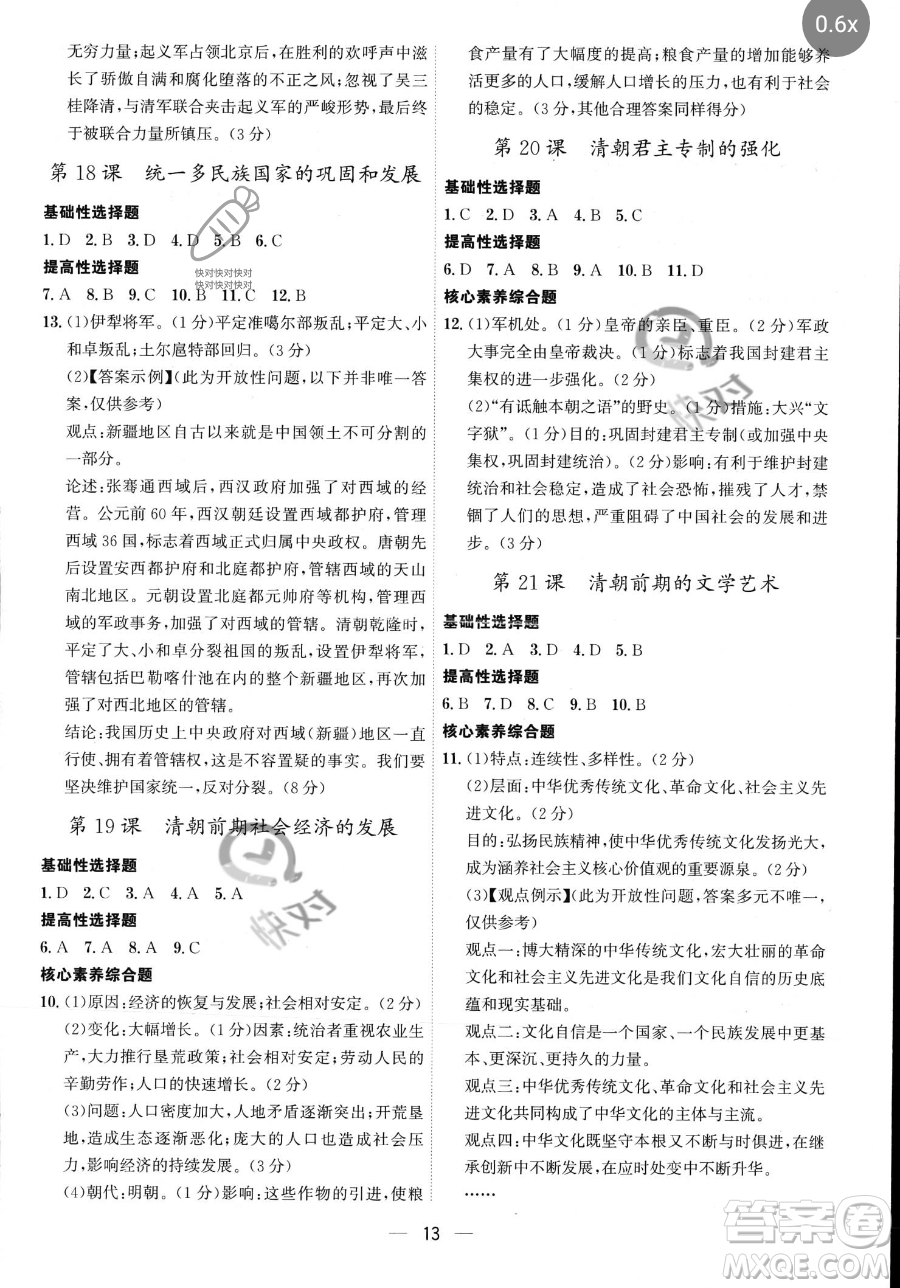 0.6x
无穷力量;起义军占领北京后,在胜利的欢呼声中滋
长了骄傲自满和腐化堕落的不正之风;忽视了吴三
桂降清,与清军联合夹击起义军的严峻形势,最后终
于被联合力量所镇压。(3 分)
第 18 课 统一多民族国家的巩固和发展
基础性选择题
1. D 2. B 3. D 4. D 5. B 6. C
提高性选择题
7. A 8. B 9. C 10. B 11. C 12. B
13. (1)伊犁将军。(1 分)平定准噶尔部叛乱;平定大、小
和卓叛乱;土尔扈特部回归。(3 分)
(2)【答案示例】(此为开放性问题,以下并非唯一答
案,仅供参考)
观点:新疆地区自古以来就是中国领土不可分割的
一部分。
论述:张骞通西域后,西汉政府加强了对西域的经
营。公元前 60 年,西汉朝廷设置西域都护府,管理
西域 36 国,标志着西域正式归属中央政权。唐朝先
后设置安西都护府和北庭都护府,管辖西域的天山
南北地区。元朝设北庭都元帅府等机构,管理西域
的军政事务,加强对西域的管辖。清朝乾隆时,
平定了大、小和卓分裂祖国的叛乱,设置伊犁将军,
管辖包括巴勒喀什池在内的整个新疆地区,再次加
强了对西北地区的管辖。
结论:我国历史上中央政府对西域(新疆)地区一直
行使、拥有着主权,这是不容置疑的事实。我们要
坚决维护国家统一,反对分裂。(8 分)
第 19 课 清朝前期社会经济的发展
基础性选择题
1. D 2. C 3. A 4. A 5. A
提高性选择题
6. A 7. A 8. A 9. C
核心素养综合题
10. (1)原因:经济的恢复与发展;社会相对安定。(2 分)
(2)变化:大幅增长。(1 分)因素:统治者重视农业生
产,大力推行垦荒政策;社会相对安定;劳动人民的
辛勤劳作;人口的快速增长。(2 分)
(3)问题:人口密度加大,人地矛盾逐渐突出;开荒垦
地,造成生态逐渐恶化;庞大的人口造成社会压
力,影响经济的持续发展。(3 分)
(4)朝代:明朝。(1 分)影响:这些作物的引进,使粮
食产量有了大幅度的提高;粮食产量的增加能够养
活更多的人口,缓解人口增长的压力,也有利于社会
的稳定。(3 分,其他合理答案同样得分)
第 20 课 清朝君主专制的强化
基础性选择题
1. C 2. D 3. A 4. B 5. C
提高性选择题
6. D 7. D 8. A 9. B 10. B 11. D
核心素养综合题
12. (1)军机处。(1 分)皇帝的亲臣、重臣。(2 分)军政
大事完全由皇帝裁决。(1 分)标志着我国封建君主
集权的进一步强化。(2 分)
(2)“有诋触本朝之语”的野史。(1 分)措施:大兴“文
字狱”。(1 分)目的:巩固封建君主专制(或加强中央
集权,巩固封建统治)。(2 分)影响:有利于维护封建
统治和社会稳定,造成了社会恐怖,摧残了人才,禁
锢了人们的思想,严重阻碍了中国社会的发展和进
步。(3 分)
第 21 课 清朝前期的文学艺术
基础性选择题
1. D 2. A 3. D 4. A 5. D
提高性选择题
6. B 7. D 8. C 9. C 10. B
核心素养综合题
11. (1)特点:连续性、多样性。(2 分)
(2)层面:中华优秀传统文化、革命文化、社会主义先
进文化。(2 分)
目的:弘扬民族精神,使中华优秀传统文化发扬光大,
成为涵养社会主义核心价值观的重要源泉。(2 分)
(3)【观点例示】(此为开放性问题,答案多元不唯一,
仅供参考)
观点一:博大精深的中华传统文化,宏大壮丽的革命
文化和社会主义先进文化是我们文化自信的历史底
蕴和现实基础。
观点二:文化自信是一个国家、一个民族发展中更基
本、更深沉、更持久的力量。
观点三:中华优秀传统文化、革命文化和社会主义先
进文化共同构成了中华文化的主体与主流。
观点四:中华文化既坚守本根又不断与时俱进,在继
承创新中不断发展,在应时处变中不断升华。
……
13
快对快对快对
快对快对快对
快对
快对
答案圈
MXQE.COM